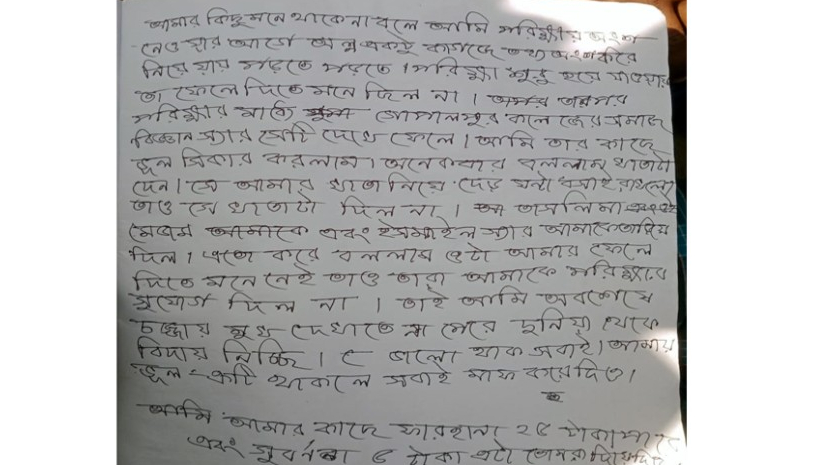 আমার কিছু মনে থাকে না বলে আমি পরিক্ষায় অংশ
নেওয়ার আগে একটু কাগজে তথ্য অংশ করে
নিয়ে যায় পড়তে পড়তে। পরিক্ষা শুরু হয়ে যাওয়ায়
তা ফেলে দিতে মনে ছিল না। তারপর
পরিক্ষার মাঝে গোপালপুর কলেজের সমাজ
বিজ্ঞান স্যার সেটি দেখে ফেলে। আমি তার কাছে
ভুল সিকার করলাম। অনেকবার বললাম খাতাটা
দেন। সে আমার খাতা নিয়ে দেড় ঘন্টা বসাই রাখলো
তাও সে খাতাটা দিল না। তাসলিমা
মেডাম আমাকে এবং ইসমাইল স্যার আমাকে
দিল। এতো করে বললাম ওটা আমার ফেলে
দিতে মনে নেই তাও তারা আমাকে পরিক্ষার
সুযোগ দিল না। তাই আমি অবশেষে
লজ্জায় মুখ দেখাতে না পেরে দুনিয়া থেকে
বিদায় নিচ্ছি। ভালো থাক সবাই। আমার
ভুল-ত্রুটি থাকলে সবাই মাফ করে দিও।
আমি আমার কাছে ফারহানা ২৫ টাকা
এবং সুবর্ণা ৫ টাকা এটা তোমরা